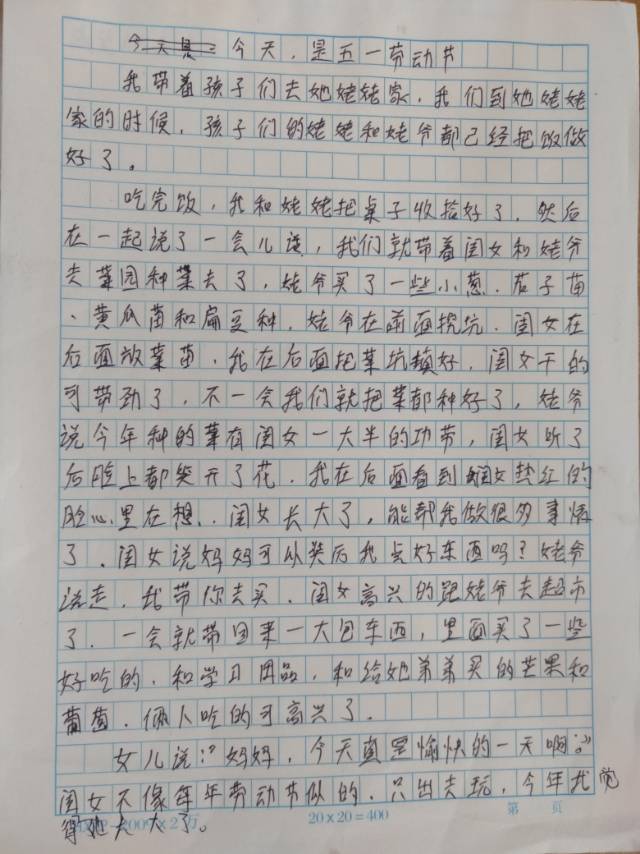 今天是 今天，是五一劳动节
我带着孩子们去她姥姥家，我们到她姥姥
家的时候，孩子们的姥姥和姥爷都已经把饭做
好了。
吃完饭，我和姥姥把桌子收拾好了，然后
在一起说了一会儿话，我们就带着闺女和姥爷
去菜园种菜去了，姥爷买了一些小葱、茄子苗
、黄瓜苗和扁豆种，姥爷在前面挖坑，闺女在
后面放菜苗，我在后面把菜坑填好，闺女干的
可带劲了，不一会我们就把菜都种好了，姥爷
说今年种的菜有闺女一大半的功劳，闺女听了
后脸上都笑开了花，我在后面看到闺女热红的
脸心里在想，闺女长大了，能帮我做很多事情
了，闺女说妈妈可以奖历我点好东西吗？姥爷
说走，我带你去买，闺女高兴的跟姥爷去超市
了，一会就带回来一大包东西，里面买了一些
好吃的，和学习用品，和给她弟弟买的芒果和
葡萄，俩人吃的可高兴了。
女儿说：“妈妈，今天真是愉快的一天啊。”
闺女不像每年劳动节似的，只出去玩，今年我觉
得她长大了。
20×20=400
第 页